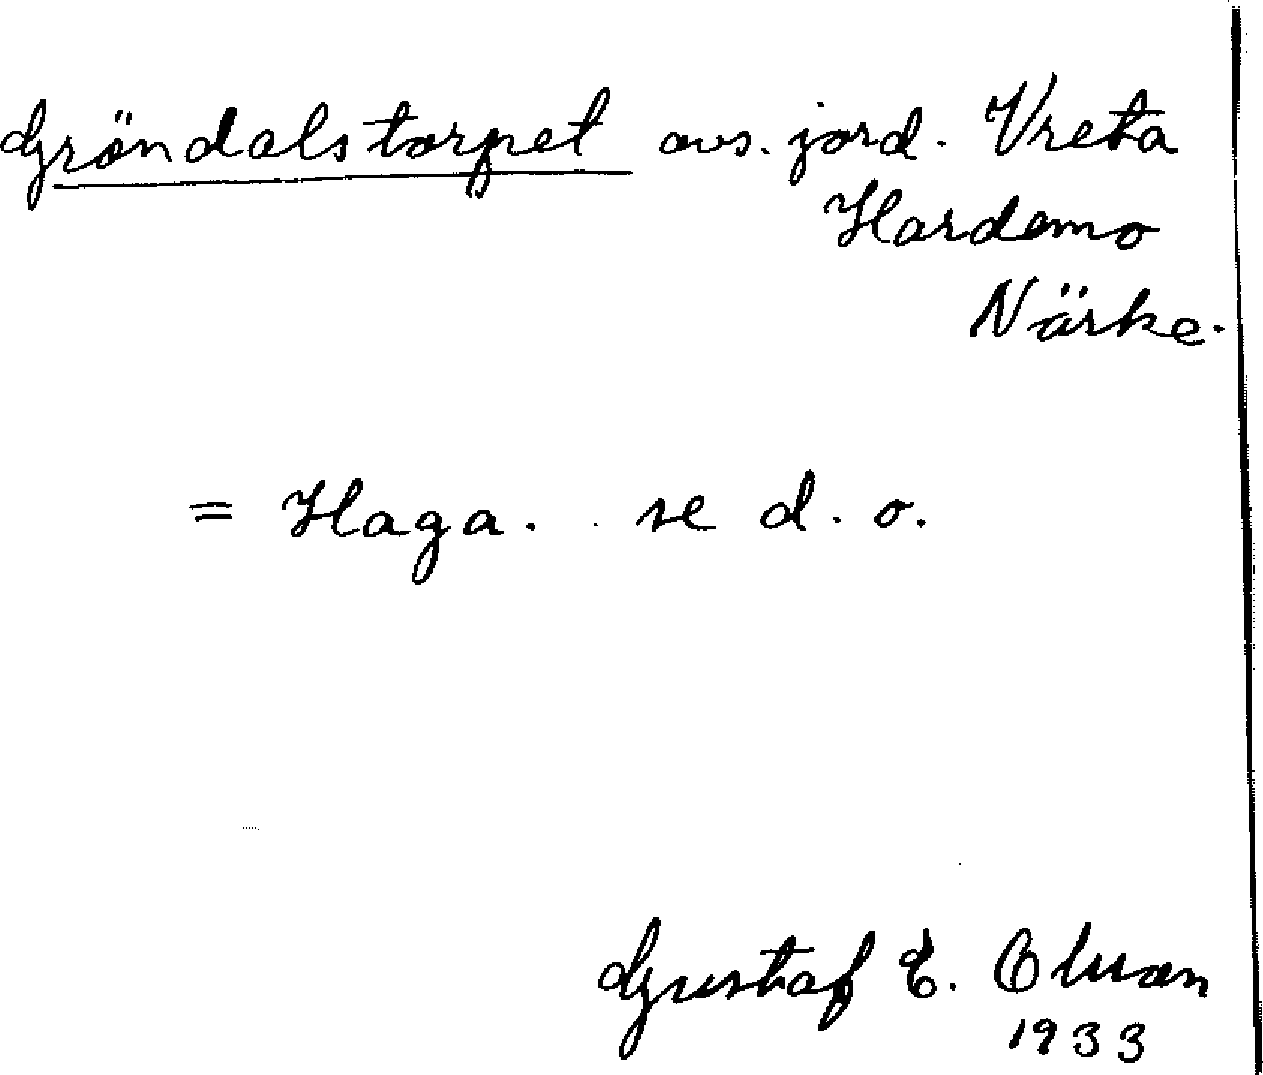 Gröndalstorpet avs. jord. Vreta
Hardemo
Närke.
= Haga. se d. o.
Gustaf E. Olsson
1933